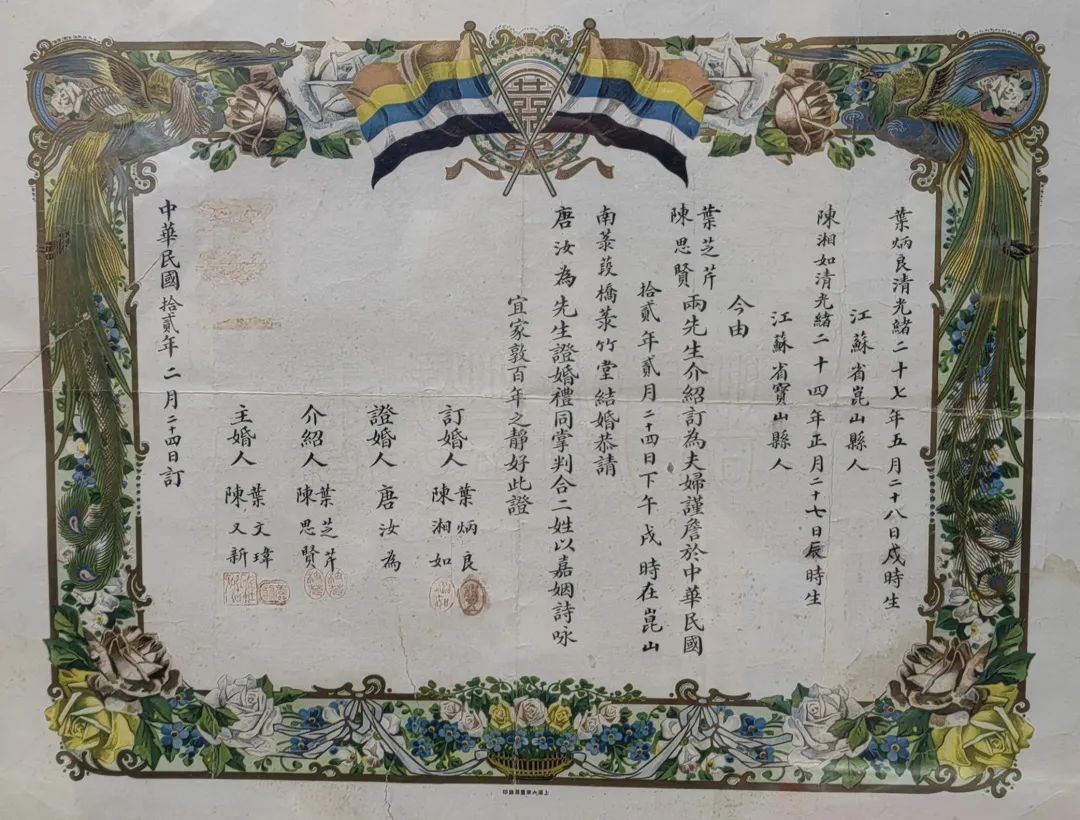 囍
葉炳良清光緒二十七年五月二十八日戌時生
江蘇省崑山縣人
陳湘如清光緒二十四年正月二十七日辰時生
江蘇省寶山縣人
今由
葉芝芹
陳思賢
兩先生介紹訂為夫婦謹詹於中華民國
拾貳年貳月二十四日下午戌時在崑山
南菉葭橋菉竹堂結婚恭請
唐汝為先生證婚禮同掌判合二姓以嘉姻詩咏
宜家敦百年之靜好此證
訂婚人
葉炳良
陳湘如
證婚人 唐汝為
介紹人
葉芝芹
陳思賢
主婚人
葉文瑋
陳又新
中華民國拾貳年二月二十四日訂